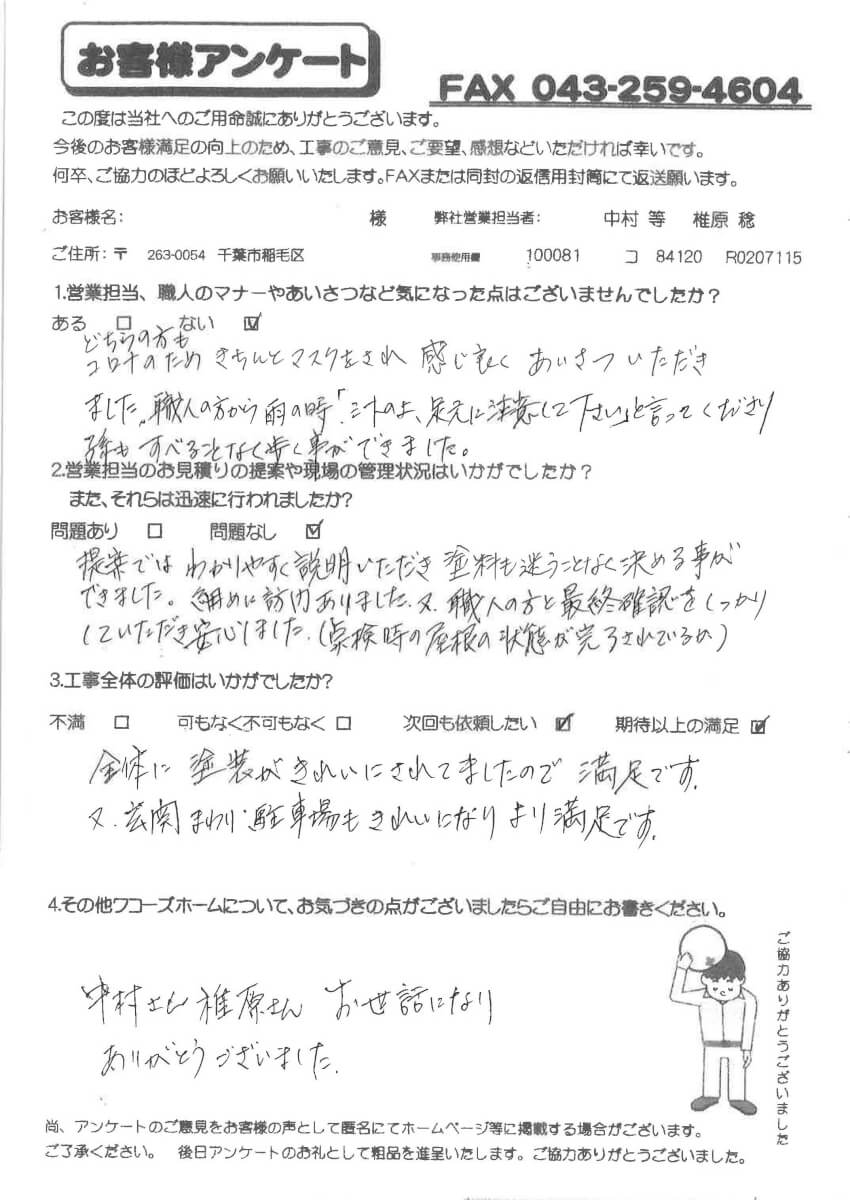 お客様アンケート
FAX 043-259-4604
この度は当社へのご用命誠にありがとうございます。
今後のお客様満足の向上のため、工事のご意見、ご要望、感想などいただければ幸いです。
何卒、ご協力のほどよろしくお願いいたします。FAXまたは同封の返信用封筒にて返送願います。
お客様名: 様 弊社営業担当者: 中村 等 椎原 稔
ご住所:〒 263-0054 千葉市稲毛区 事務使用欄 100081 コ 84120 R0207115
1.営業担当、職人のマナーやあいさつなど気になった点はございませんでしたか?
ある □ ない ☑
どちらの方も
コロナのため きちんとマスクをされ 感じ良く あいさついただき
ました。職人の方から雨の時「シートの上、足元に注意して下さい」と言ってくださり
すべることなく歩く事ができました。
2.営業担当のお見積りの提案や現場の管理状況はいかがでしたか?
また、それらは迅速に行われましたか?
問題あり □ 問題なし ☑
提案では わかりやすく説明いただき 塗料も迷うことなく決める事が
できました。細めに訪問ありました。又、職人の方と最終確認をしっかり
していただき安心しました。(点検時の屋根の状態が完了されているか)
3.工事全体の評価はいかがでしたか?
不満 □ 可もなく不可もなく □ 次回も依頼したい ☑ 期待以上の満足 ☑
全体に 塗装がきれいにされてましたので 満足です。
又、玄関まわり・駐車場もきれいになり より満足です。
4.その他ワコーズホームについて、お気づきの点がございましたらご自由にお書きください。
中村さん 椎原さん お世話になり
ありがとうございました。
ご協力ありがとうございました
尚、アンケートのご意見をお客様の声として匿名にてホームページ等に掲載する場合がございます。
ご了承ください。 後日アンケートのお礼として粗品を進呈いたします。ご協力ありがとうございました。